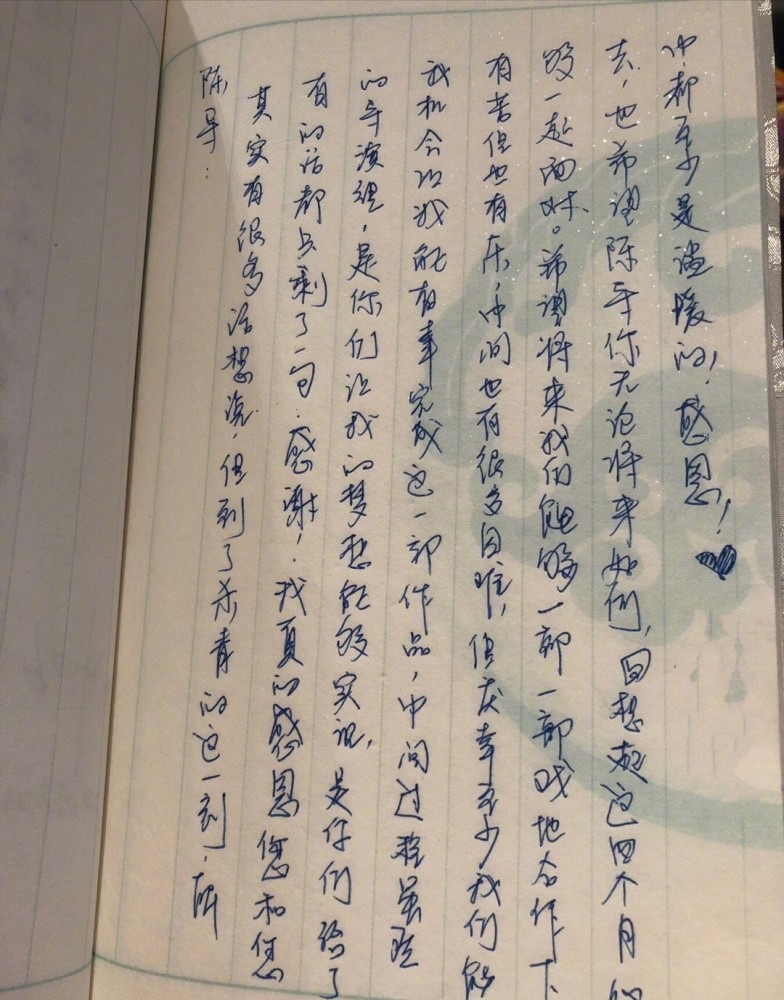 陈导：
其实有很多话想说，但到了杀青的这一刻，所
有的话都只剩了一句：感谢！我真的感恩您和您
的导演组，是你们让我的梦想能够实现，是你们给了
我机会让我能有幸完成这一部作品，中间过程虽然
有苦但也有乐，中间也有很多困难，但庆幸至少我们能
够一起面对。希望将来我们能够一部一部戏地合作下
去，也希望陈导你无论将来如何，回想起这四个月
中都至少是温暖的！感恩！♥